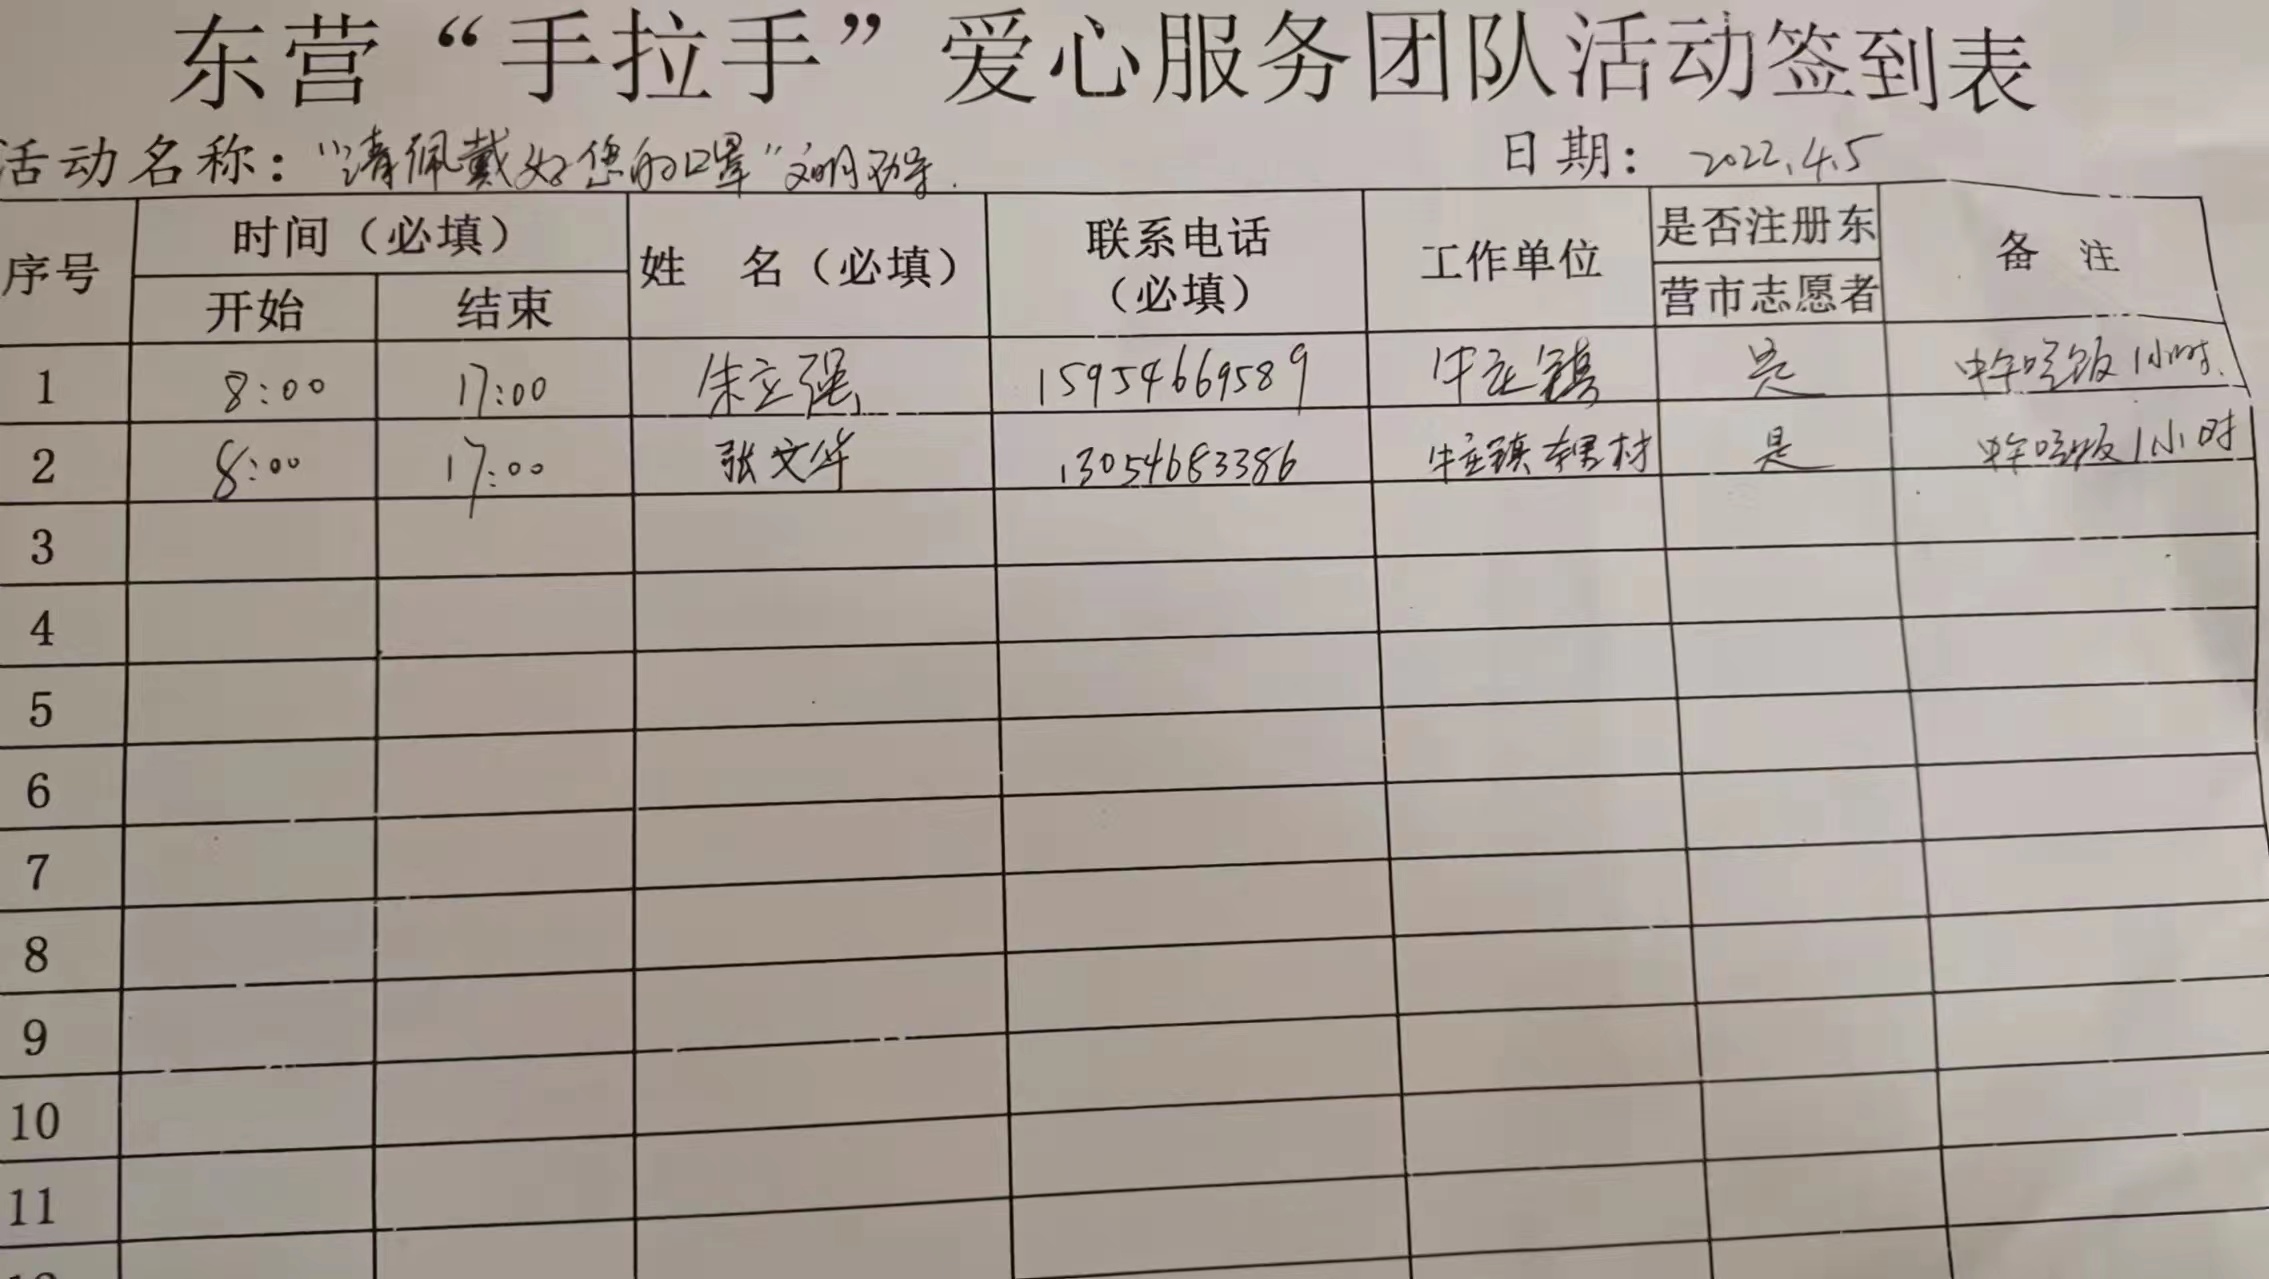 东营“手拉手”爱心服务团队活动签到表
活动名称：“请佩戴好您的口罩”文明劝导. 日期：2022.4.5
序号 时间（必填） 姓 名（必填） 联系电话（必填） 工作单位 是否注册东营市志愿者 备 注
开始 结束
1 8:00 17:00 朱立强 15954669589 牛庄镇 是 中午吃饭1小时.
2 8:00 17:00 张文华 13054683386 牛庄镇 村 是 中午吃饭1小时
3
4
5
6
7
8
9
10
11